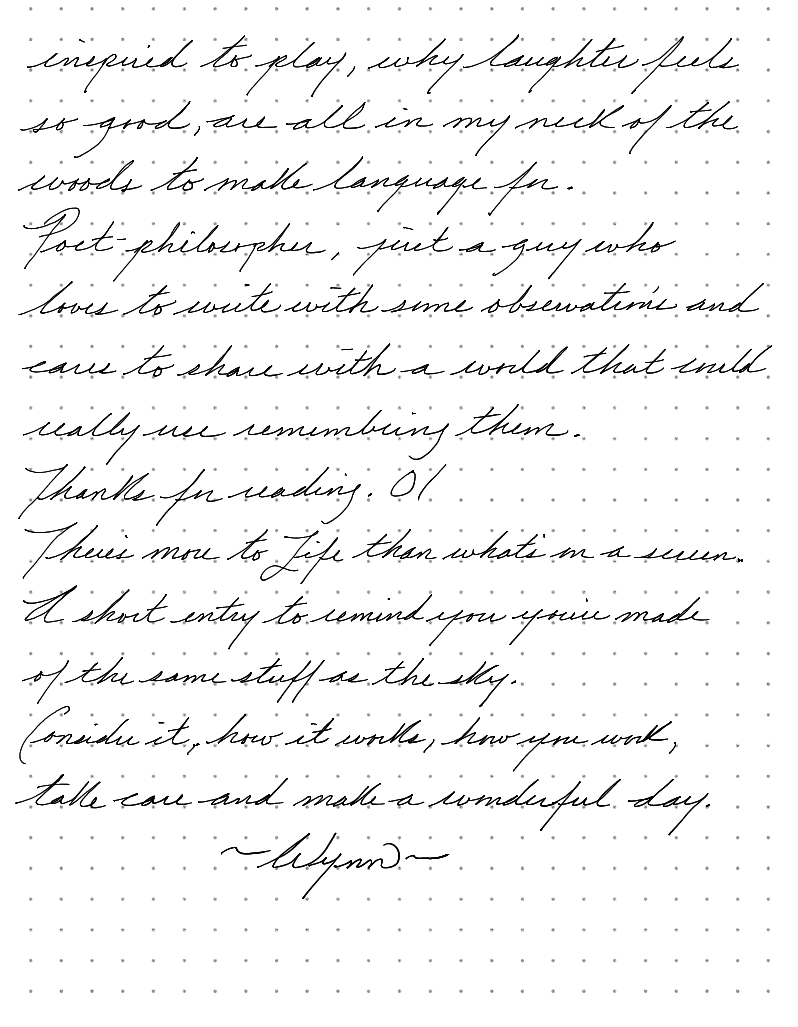 inspired to play, why laughter feels
so good, are all in my neck of the
woods to make language for.
Poet-philosopher, just a guy who
loves to write with some observations and
cares to share with a world that could
really use remembering them.
Thanks for reading. 01
There's more to Life than what's on a screen.
A short entry to remind you you're made
of the same stuff as the sky.
Consider it, how it works, how you work,
take care and make a wonderful day.
~Wynn~